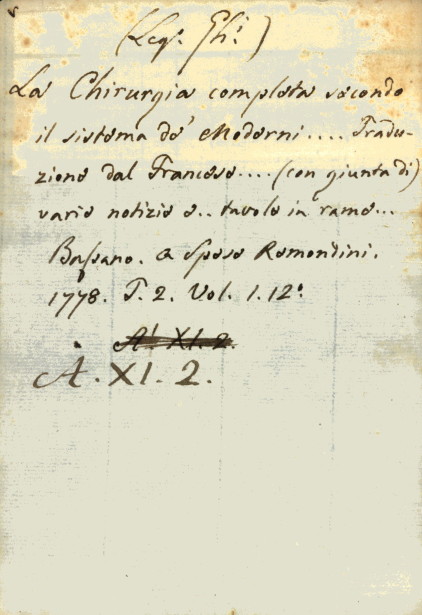 (Leg. Ghi.)
La Chirurgia completa secondo
il sistema de' Moderni.... Tradu-
zione dal Francese.... (con giunta di)
varie notizie e.. tavole in rame...
Bassano. A spese Remondini.
1778. T. 2. Vol. 1. 12.°
A. XI. 2.
A. XI. 2.